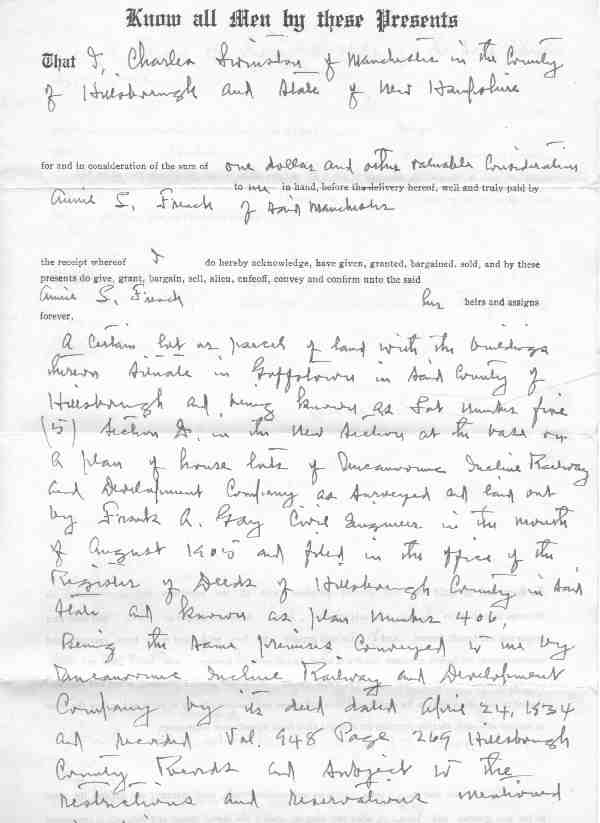 Know all Men by these Presents
That I, Charles Swinston of Manchester in the County
of Hillsborough and State of New Hampshire
for and in consideration of the sum of one dollar and other valuable Consideration
to me in hand, before the delivery hereof, well and truly paid by
Annie S. French of said Manchester
the receipt whereof I do hereby acknowledge, have given, granted, bargained, sold, and by these
presents do give, grant, bargain, sell, alien, enfeoff, convey and confirm unto the said
Annie S. French her heirs and assigns
forever,
A Certain lot or parcel of land with the buildings
thereon situate in Goffstown in said County of
Hillsborough and being known as Lot number five
(5) Section D. in the New Section at the base on
a plan of house lots of Uncanoonuc Incline Railway
and Development Company as surveyed and laid out
by Frank A. Gay Civil Engineer in the month
of August 1905 and filed in the office of the
Register of Deeds of Hillsborough County in said
State and known as plan number 406.
Being the same premises Conveyed to me by
Uncanoonuc Incline Railway and Development
Company by its deed dated April 24, 1934
and recorded Vol. 948 Page 269 Hillsborough
County Records and subject to the
restrictions and reservations mentioned